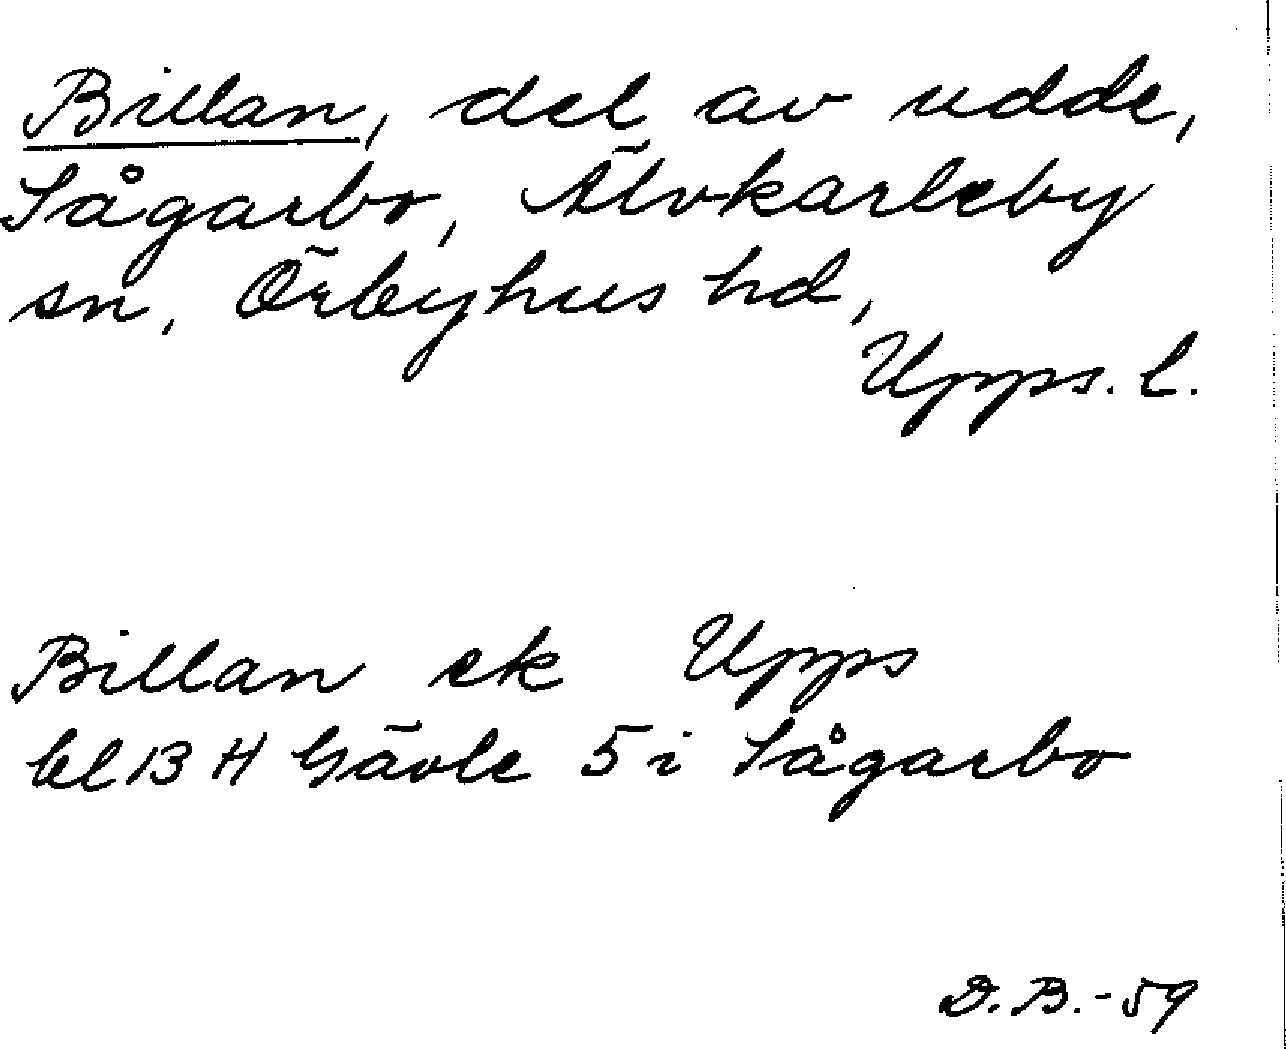 Billan, del av udde,
Sågarbo, Älvkarleby
sn, Örbyhus hd,
Upps. l.
Billan ek Upps
bl 13 H Gävle 5 i Sågarbo
D.B.-59